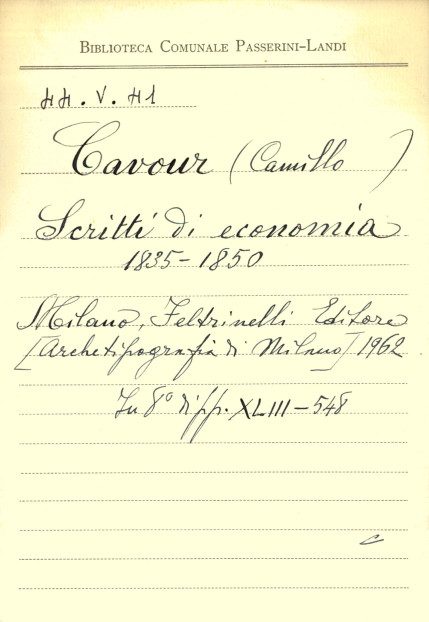 BIBLIOTECA COMUNALE PASSERINI-LANDI
HH. V. H1
Cavour (Camillo )
Scritti di economia
1835-1850
Milano, Feltrinelli Editore
[Archetipografia di Milano] 1962
In 8° di pp. XLIII-548
c